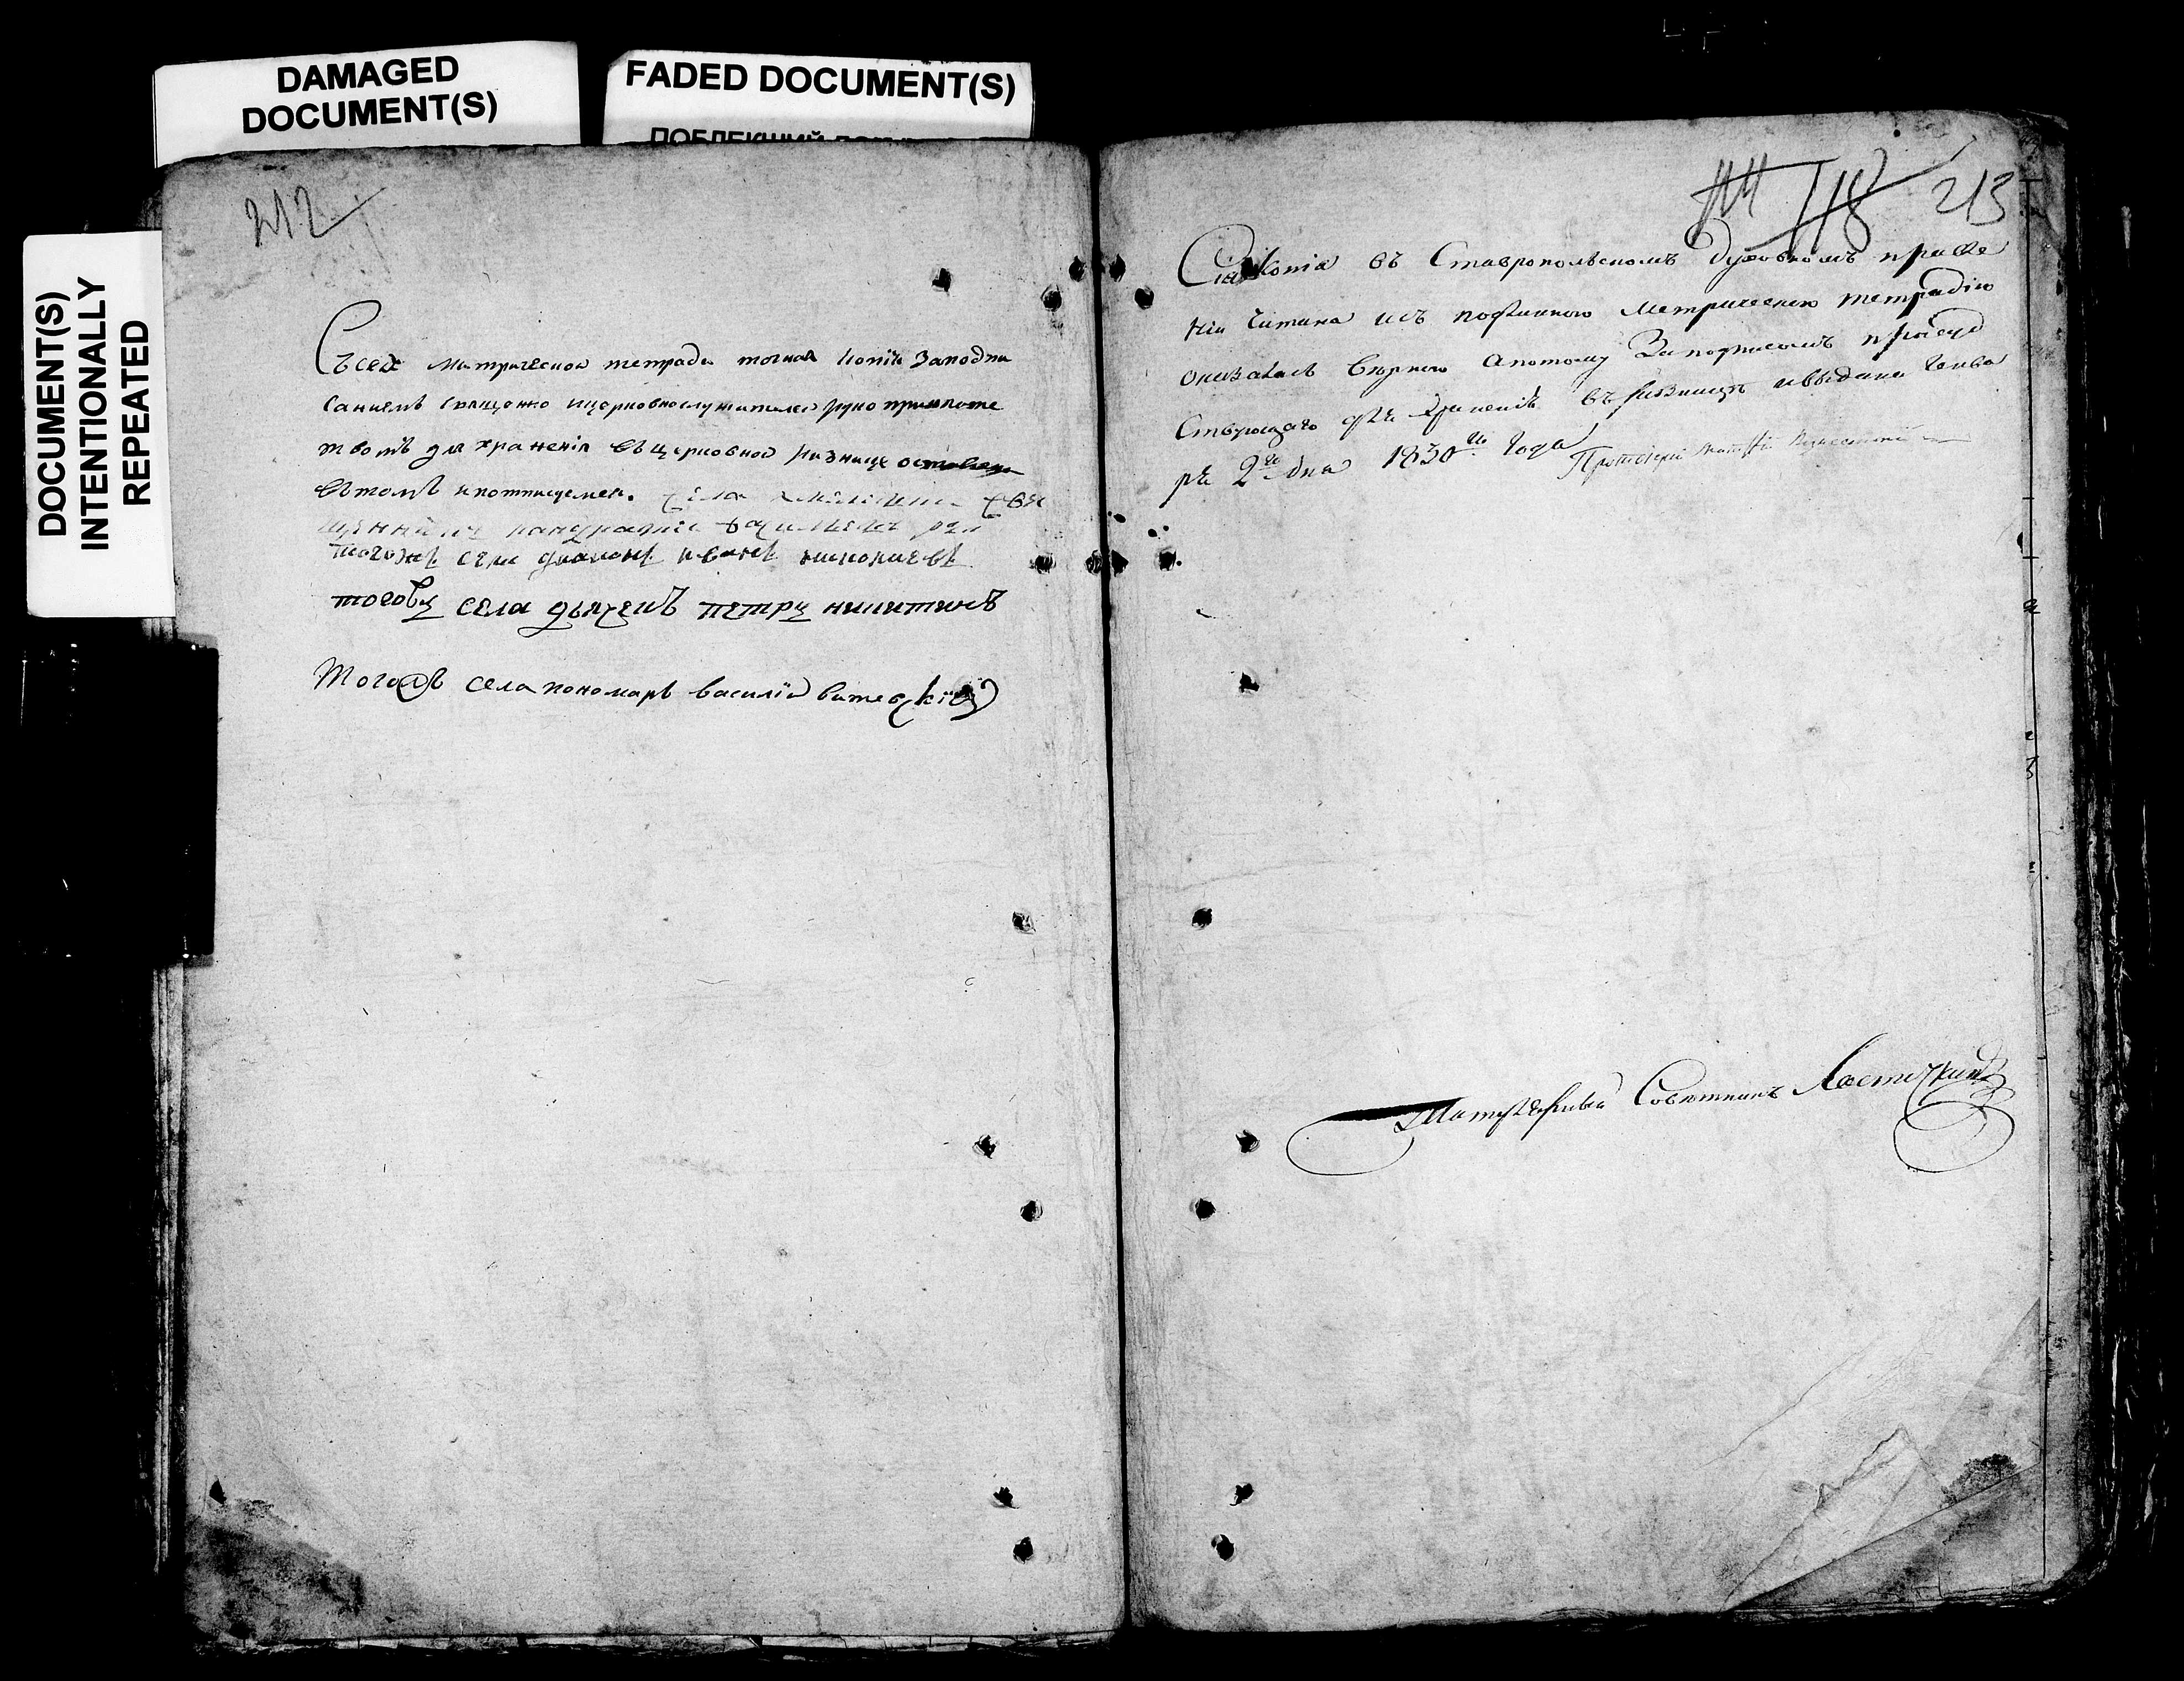 DAMAGED
DOCUMENT(S)
FADED DOCUMENT(S)
DOCUMENT(S)
INTENTIONALLY
REPEATED
212
Съсей Метрической тетради точная копія Заподпи
саніемъ священно ицерковнослужителей руко
для храненія въ церковной ризнице оставлена
вътомъ иподписуемся. села
тогожъ села діаконъ иванъ
тогожъ села дьячекъ петръ никитинъ
Тогожъ села пономарь василій витевскій
118 213
Сія Копія въ Ставропольскомъ духовномъ правле
ніи Читана исъ подлинною Метрическою тетрадью
оказалась Верною апотому Заподписомъ присуд
ствующаго для храненія въ ризницѣ ивыдана Генва
ря 2го дня 1830го года Протоіерей
Титулярный Совѣтникъ